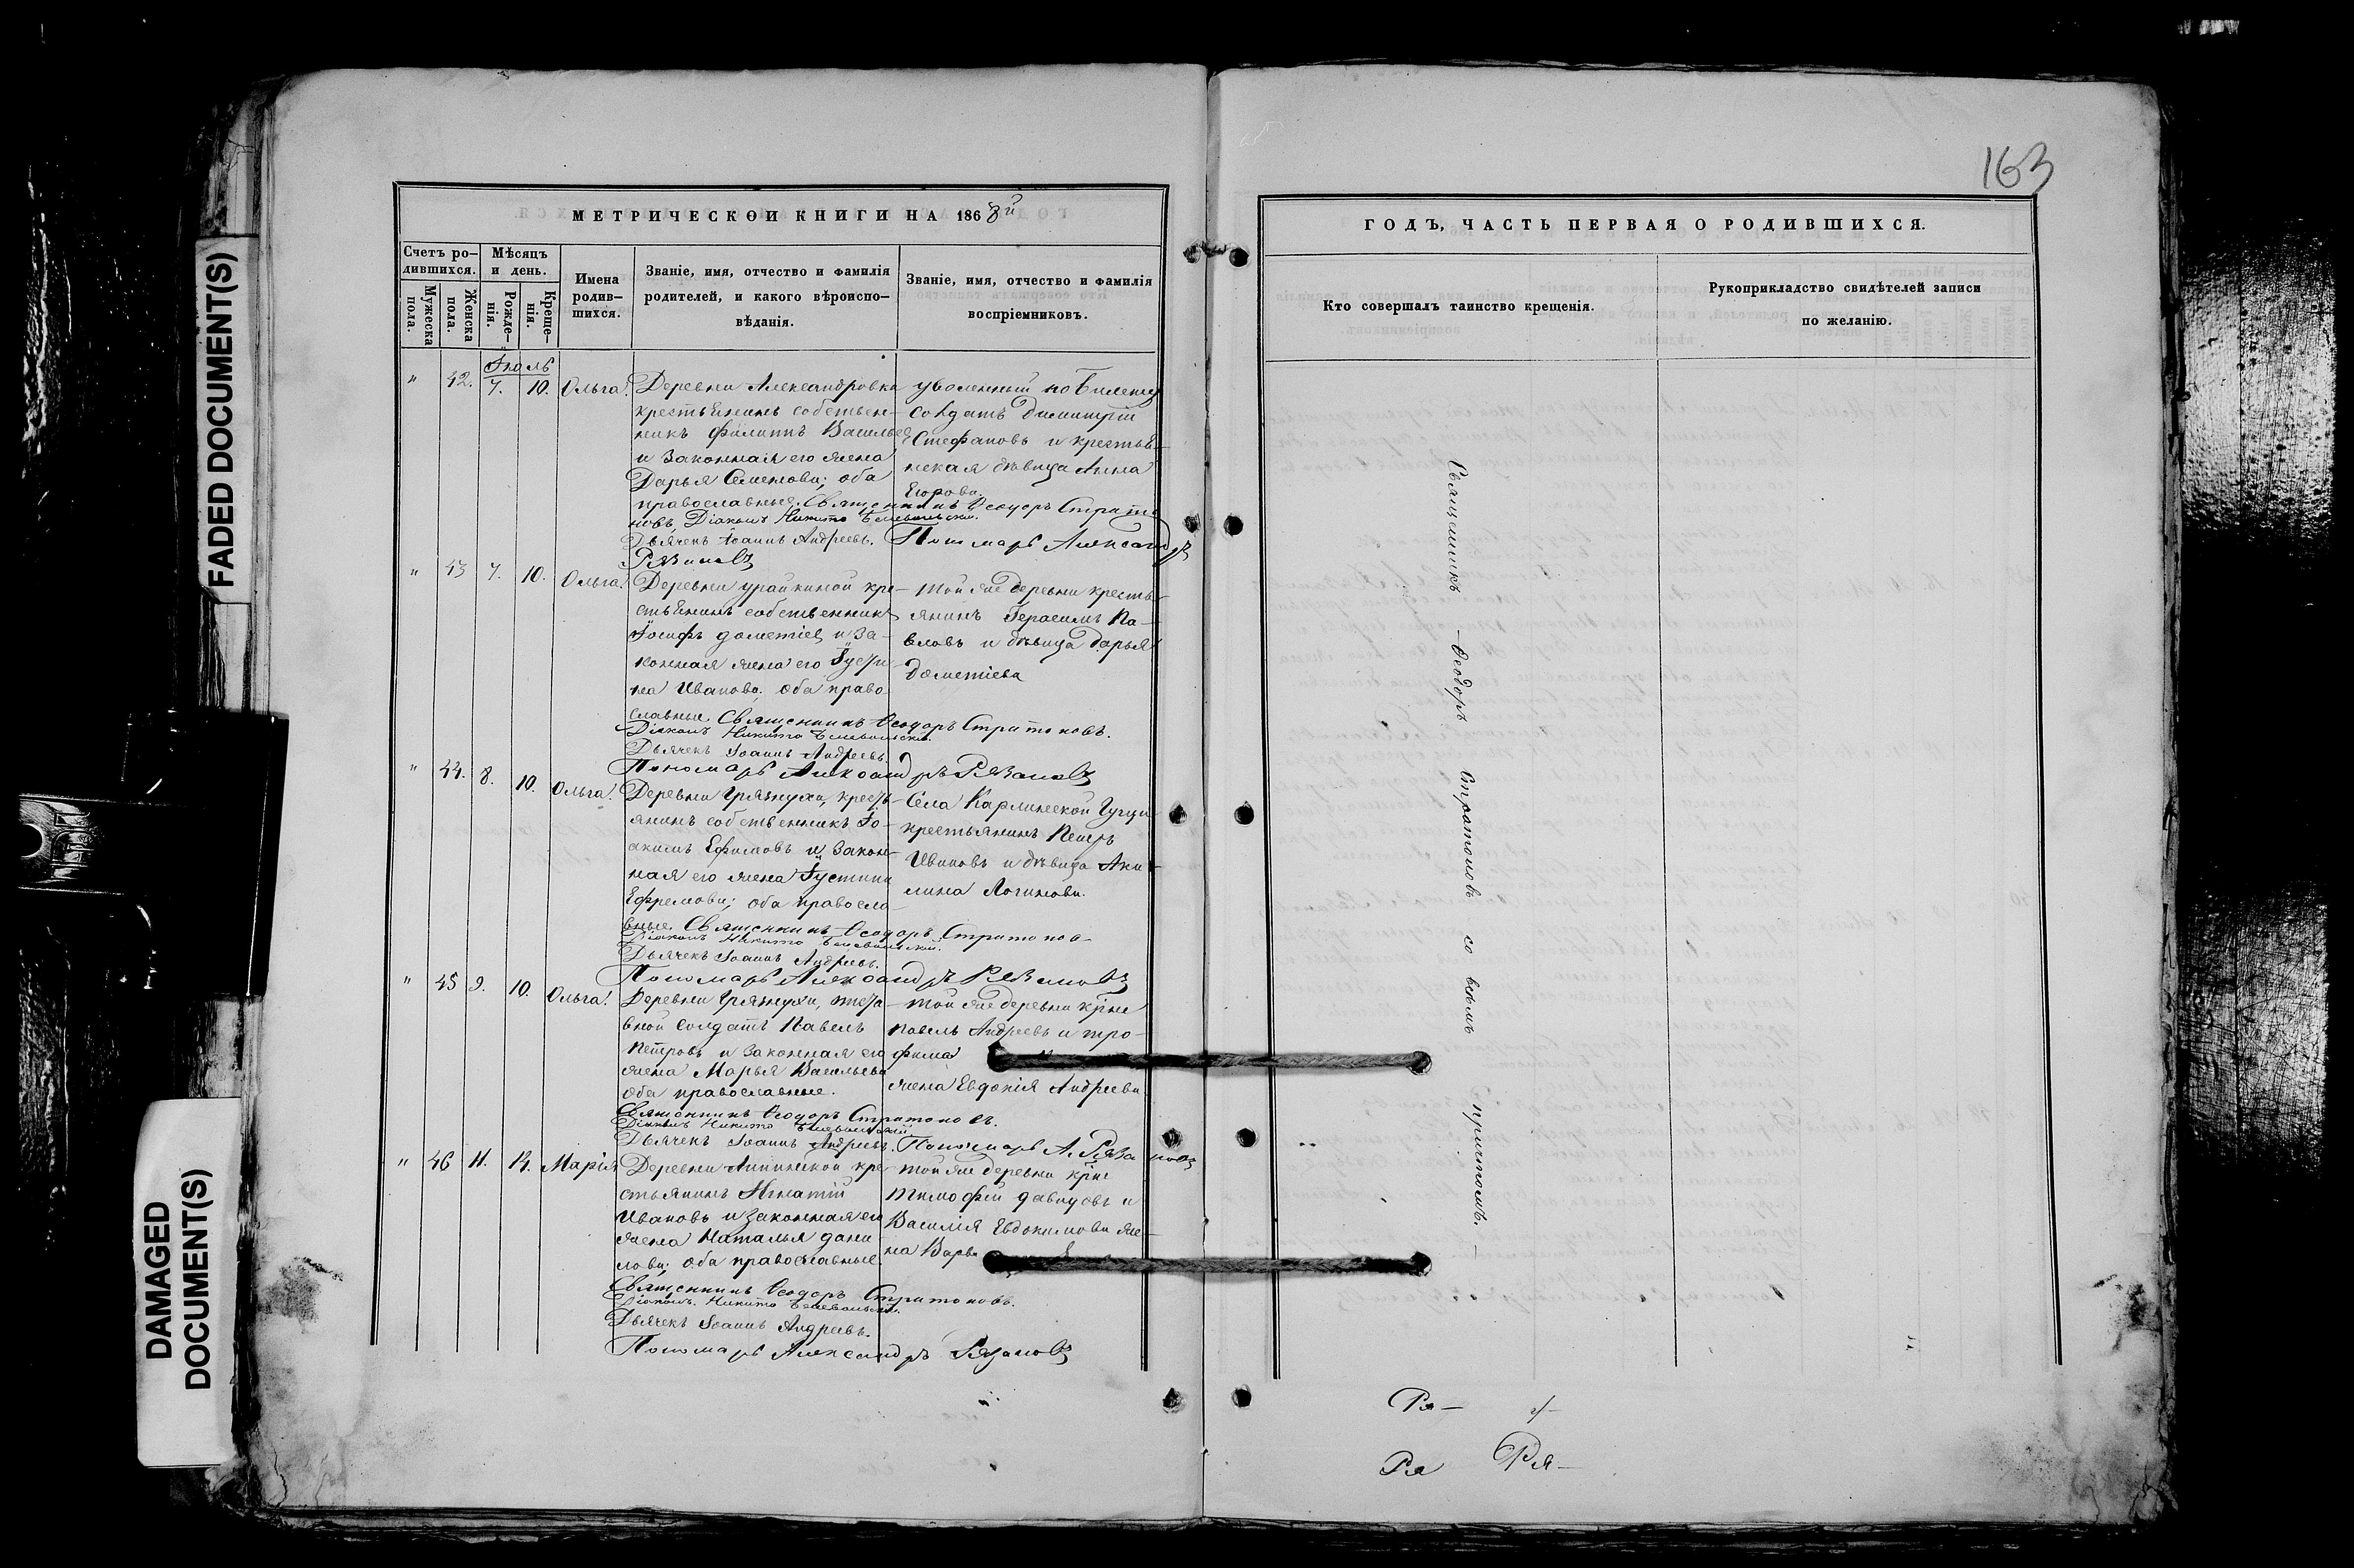 FADED DOCUMENT(S)
DAMAGED
DOCUMENT(S)
МЕТРИЧЕСКОИ КНИГИ НА 1868й
Счетъ ро-
дившихся.
Мужеска
пола.
Женска
пола.
Мѣсяцъ
и день.
Рожде-
нія.
Креще-
нія.
Имена
родив-
шихся.
Званіе, имя, отчество и фамилія
родителей, и какого вѣроиспо-
вѣданія.
Званіе, имя, отчество и фамилія
воспріемниковъ.
Іюль
" 42. 7. 10. Ольга.
Деревни Александровки
крестьянинъ собствен-
никъ Филиппъ Васильевъ
и законная его жена
Дарья Семенова; оба
православные. Священникъ Ѳеодоръ Страто
новъ, Діаконъ Никита
Дьячекъ Іоаннъ Андреевъ. Пономарь Александръ
Рязановъ
уволенный по билету
солдатъ Димитрій
Стефановъ и крестья-
нская дѣвица Анна
Егорова.
" 43 7. 10. Ольга.
Деревни Урайкиной кре-
стьянинъ собственникъ
Іосифъ Дометіевъ и за-
конная жена его Іусти-
на Иванова. оба право-
славные. Священникъ Ѳеодоръ Стратоновъ.
Діаконъ Никита
Дьячекъ Іоаннъ Андреевъ.
Пономарь Александръ Рязановъ
той же деревни кресть-
янинъ Герасимъ Па-
вловъ и дѣвица Дарья
Дометіева
" 44. 8. 10. Ольга.
Деревни Грязнухи, кресть-
янинъ собственникъ Іо-
акимъ Ефимовъ и закон-
ная его жена Іустина
Ефремова; оба правосла-
вные. Священникъ Ѳеодоръ Стратонов-
Діаконъ Никита
Дьячекъ Іоаннъ Андреевъ.
Пономарь Александръ Рязановъ
Села Карлинской
крестьянинъ Петръ
Ивановъ и дѣвица Аки-
лина Логинова.
" 45 9. 10. Ольга.
Деревни Грязнухи,
солдатъ Павелъ
Петровъ и законная его
жена Марья Васильева
оба православные.
Священникъ Ѳеодоръ Стратоновъ.
Діаконъ Никита
Дьячекъ Іоаннъ Андреевъ. Пономарь А. Рязановъ
той же деревни кр҃не
Павелъ Андреевъ и тро-
фима
жена Евдокія Андреева
" 46 11. 14. Марія
Деревни кре-
стьянинъ Игнатій
Ивановъ и законная его
жена Наталья Дани-
лова; оба православные.
Священникъ Ѳеодоръ Стратоновъ.
Діаконъ Никита
Дьячекъ Іоаннъ Андреевъ.
Пономарь Александръ Рязановъ
той же деревни кр҃не
Тимофей Давидовъ и
Василія Евдокимова же-
на Варва
163
ГОДЪ, ЧАСТЬ ПЕРВАЯ О РОДИВШИХСЯ.
Кто совершалъ таинство крещенія.
Рукоприкладство свидѣтелей записи
по желанію.
Священникъ Ѳеодоръ Стратоновъ со всѣмъ причтомъ. —
Ря —
Ря Ря —